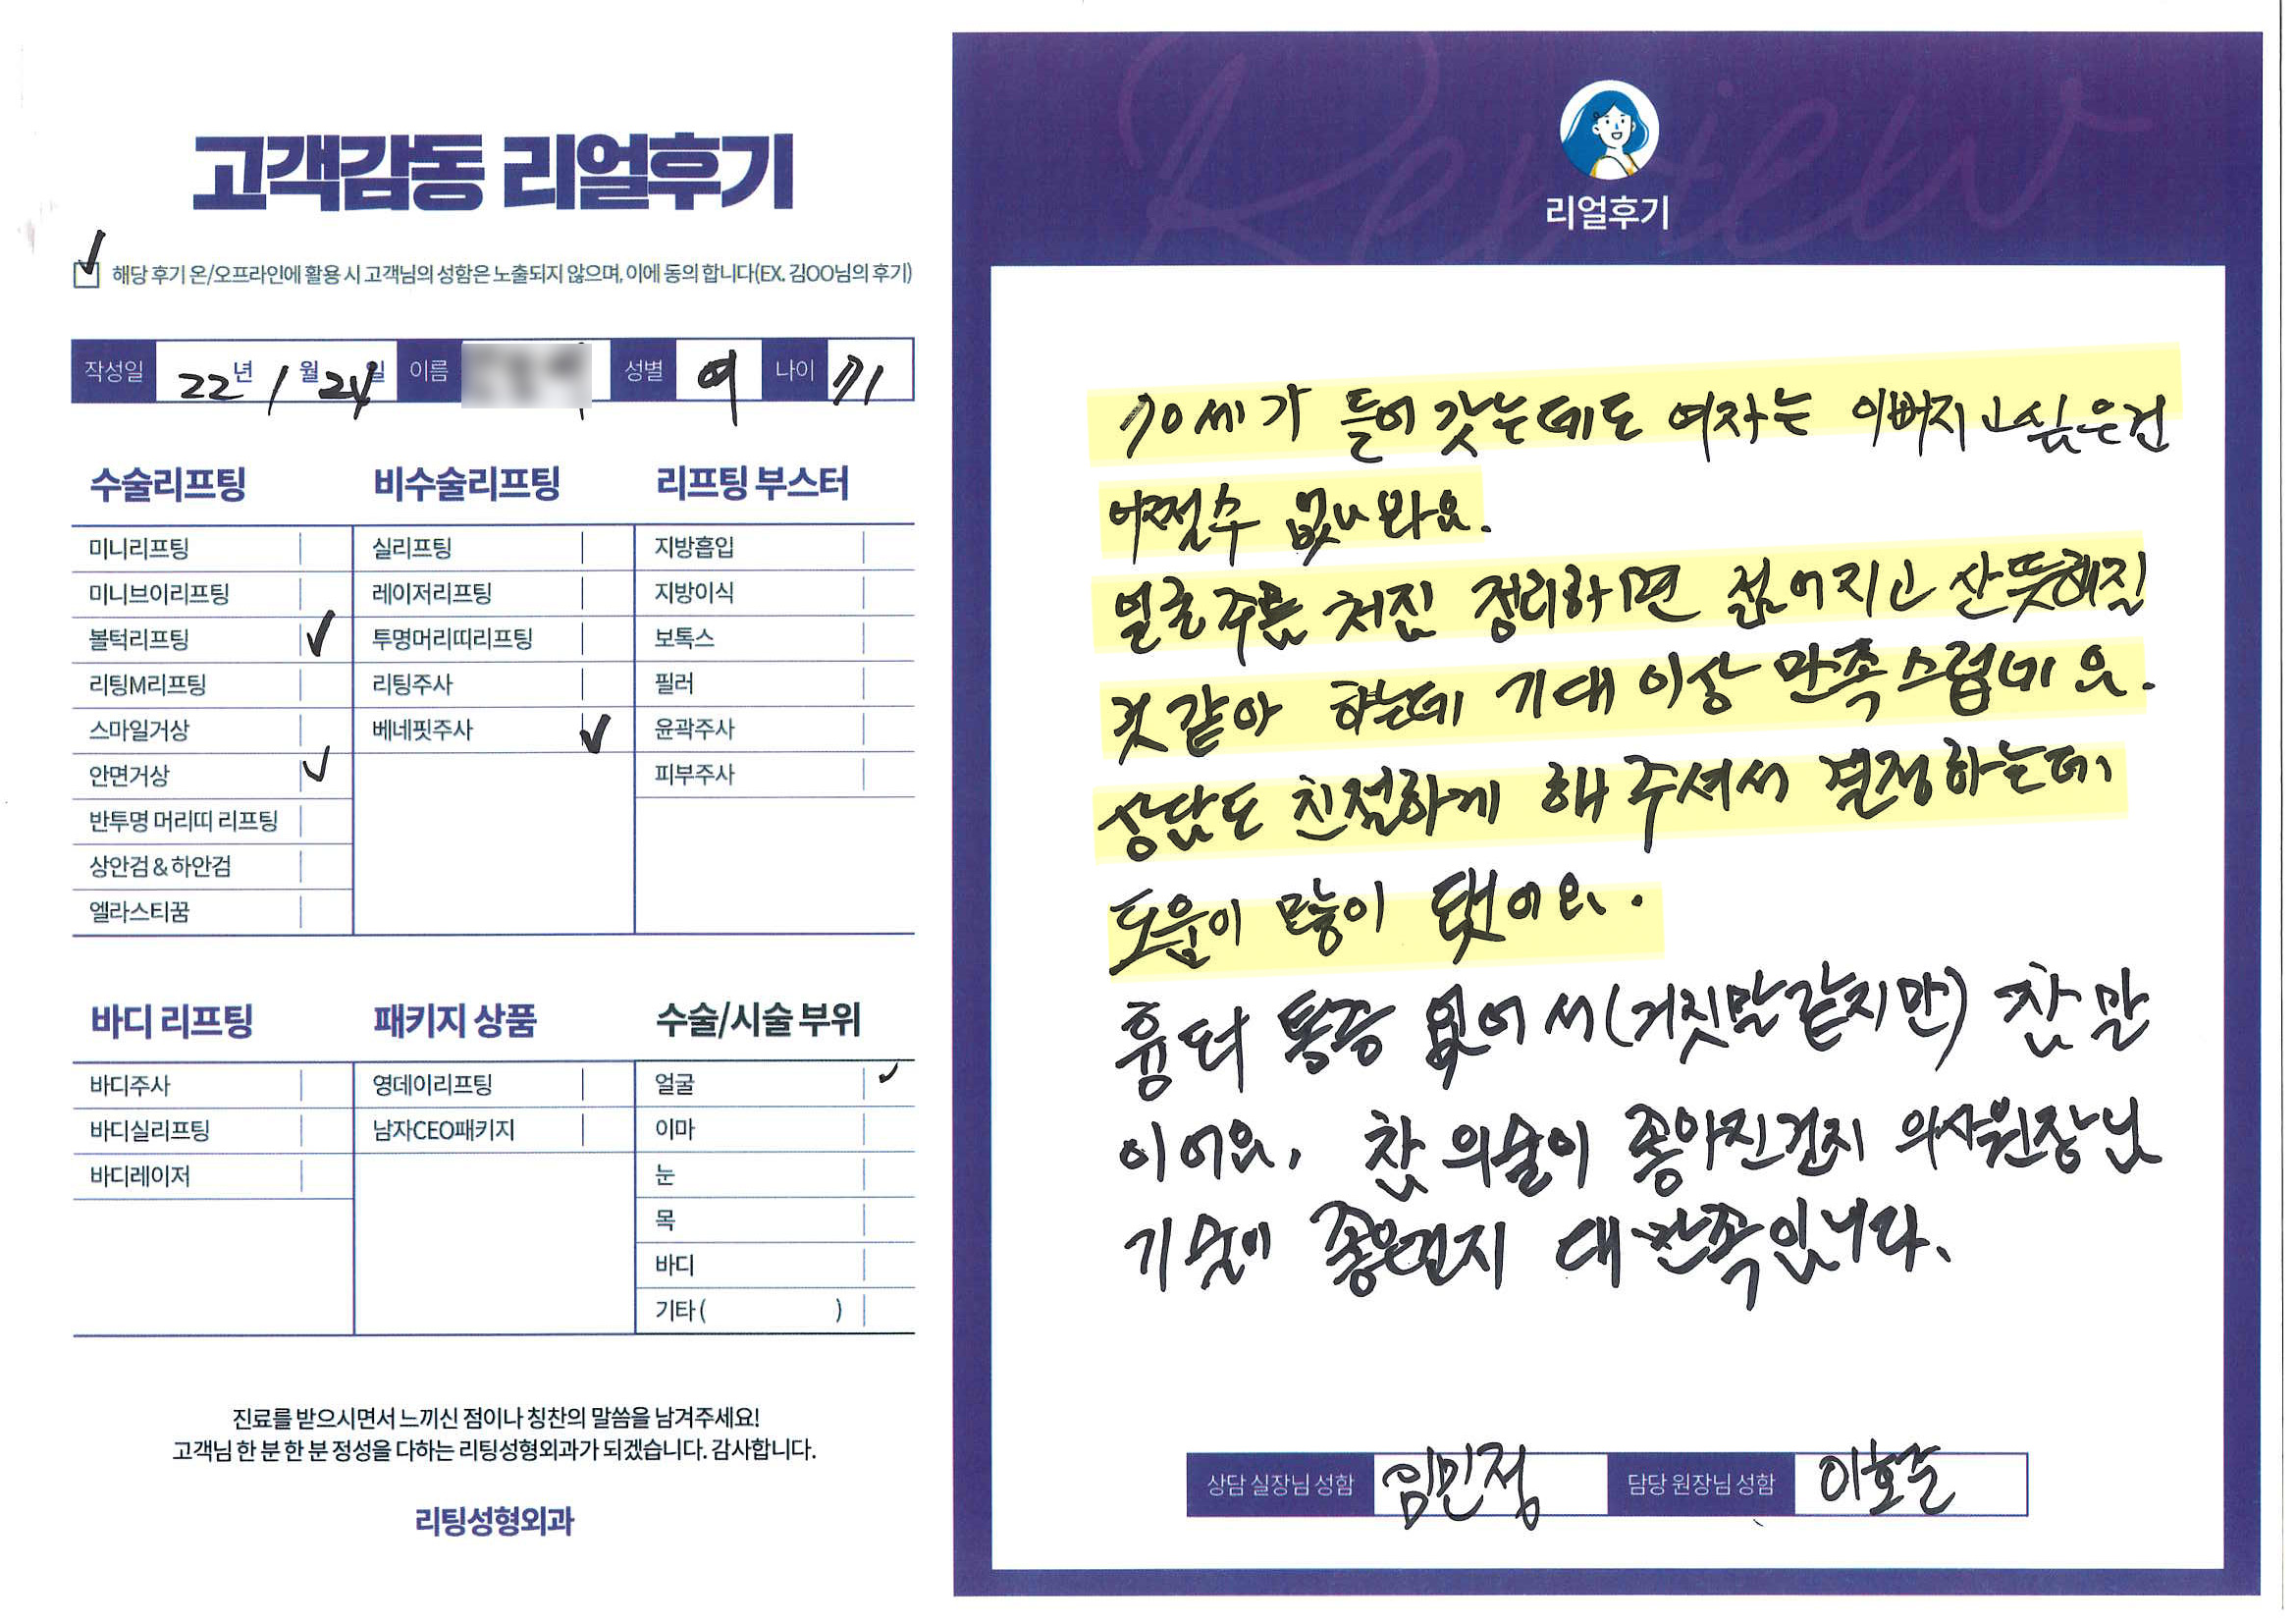 고객감동 리얼후기
해당 후기 온/오프라인에 활용 시 고객님의 성함은 노출되지 않으며, 이에 동의 합니다(EX. 김OO님의 후기)
작성일 22년 1월 24일 이름 성별 여 나이 71
수술리프팅
미니리프팅
미니브이리프팅
볼턱리프팅 ✓
리팅M리프팅
스마일거상
안면거상 ✓
반투명 머리띠 리프팅
상안검 & 하안검
엘라스티꿈
비수술리프팅
실리프팅
레이저리프팅
투명머리띠리프팅
리팅주사
베네핏주사 ✓
리프팅 부스터
지방흡입
지방이식
보톡스
필러
윤곽주사
피부주사
바디 리프팅
바디주사
바디실리프팅
바디레이저
패키지 상품
영데이리프팅
남자CEO패키지
수술/시술 부위
얼굴 ✓
이마
눈
목
바디
기타 ( )
진료를 받으시면서 느끼신 점이나 칭찬의 말씀을 남겨주세요!
고객님 한 분 한 분 정성을 다하는 리팅성형외과가 되겠습니다. 감사합니다.
리팅성형외과
Review
리얼후기
70세가 들어 갓는데도 여자는 이뻐지고 싶은건
어쩔수 없나봐요.
얼굴 주름 처짐 정리하면 젊어지고 산뜻해질
것 같아 하는데 기대 이상 만족스럽네요.
상담도 친절하게 해 주셔서 결정하는데
도움이 많이 됏어요.
흉터 통증 없어서(거짓말같지만) 참말
이어요, 참 의술이 좋아진건지 의사원장님
기술이 좋은건지 대만족입니다.
상담 실장님 성함 임민정 담당 원장님 성함